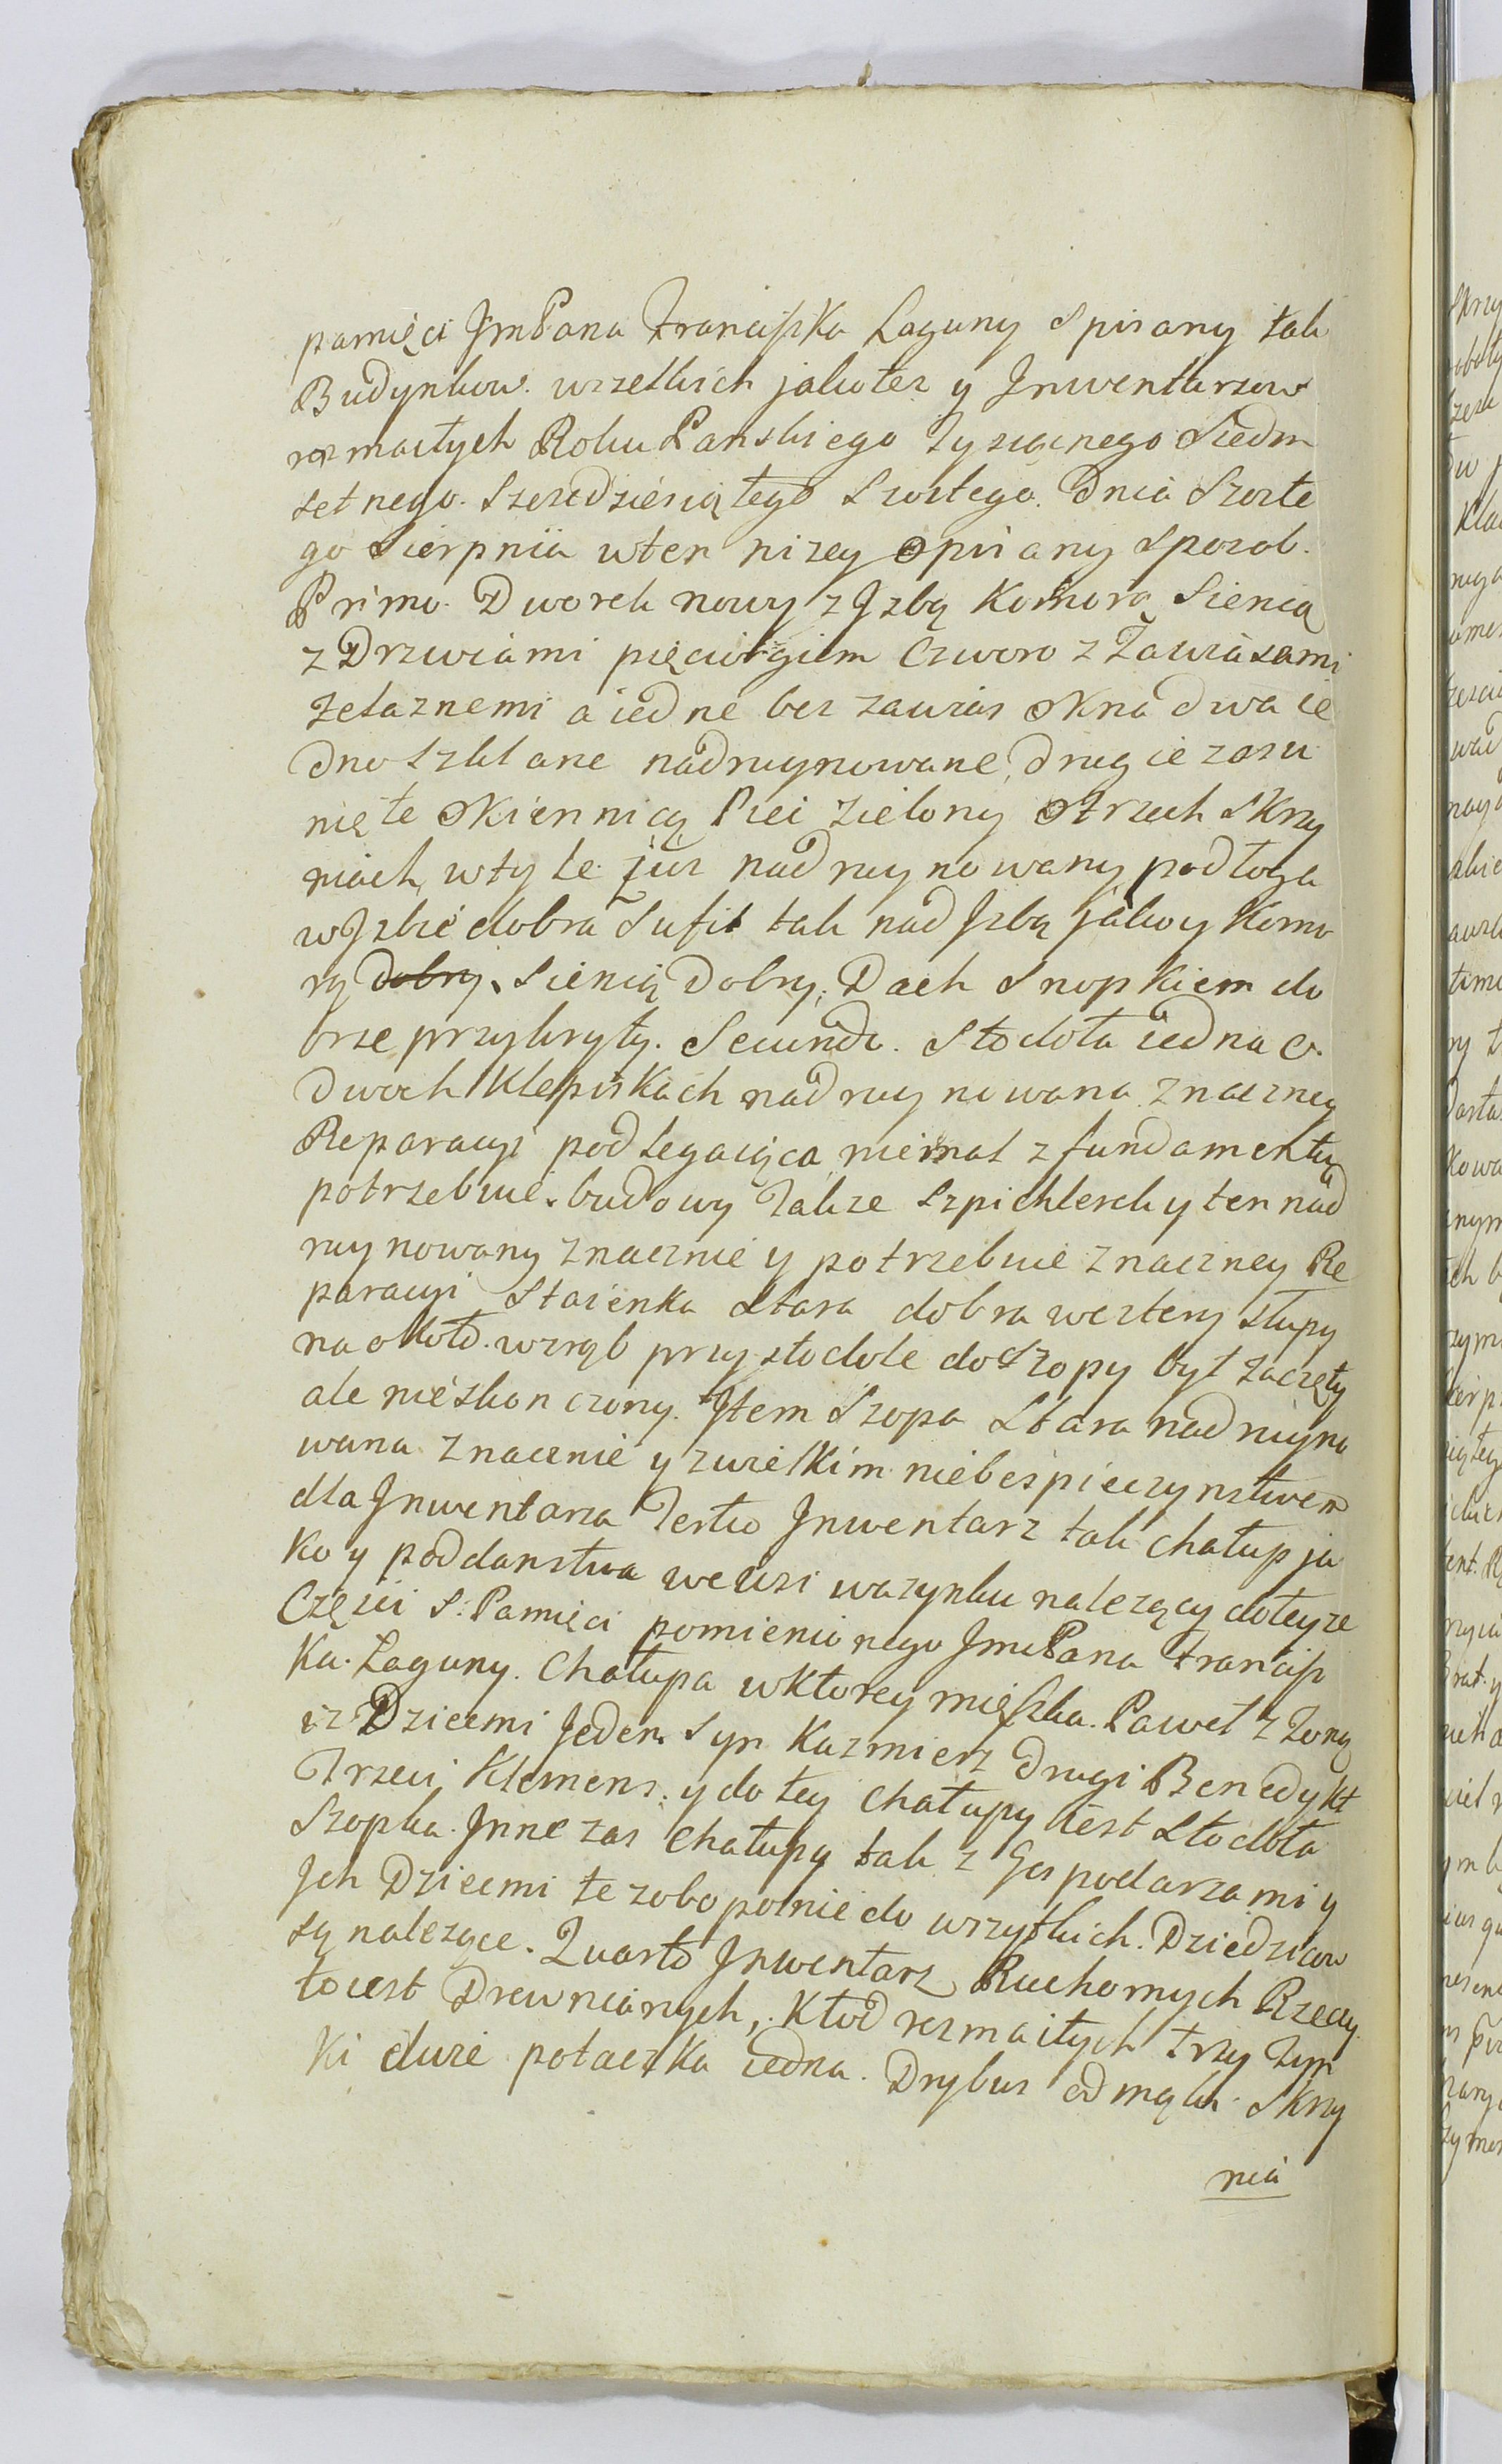 pamięci JmPana Franciszka Łaguny Spisany tak
Budynkow wszelkich jako tez y Jnwentarzow
rozmaitych Roku Panskiego Tysiącnego Siedm
setnego Szescdziesiątego Szostego Dnia Szoste
go Sierpnia wten nizey opisany sposob.
Primo. Dworek nowy z Jzbą Komorą Sienią
z Drzwiami pięciorgiem Czworo z Zawiasami
zelaznemi a iedne bez zawias okna dwa ie
dno Szklane nadruynowane, drugie zasu
nięte okiennicą Piec Zielony o trzech Skrzy
niach, wtyle juz nadruynowany podłoga
w Jzbie dobra Sufit tak nad Jzbą jako y Komo
rą dobry. Sienią Dobry; Dach Snopkiem do
brze przykryty. Secundo. Stodoła iedna o
dwoch Klepiskach nadruynowana znaczney
Reparacyi podlegaiąca niemal z fundamentu
potrzebuie budowy Takze Szpichlerek y ten nad
ruynowany znacznie y potrzebuie znaczney Re
paracyi Staienka Stara dobra wcztery słupy
naokoło. wzrąb przy stodole do Szopy był zaczęty
ale nieskonczony. Jtem Szopa Stara nadruyno
wana znacznie y zwielkim niebespieczynstwem
dla Jnwentarza Tertio Jnwentarz tak chałup ja
ko y poddanstwa we Wsi waszynku nalezący dotycze
Częsci S: Pamięci pomienionego JmcPana Francisz
ka Łaguny. Chałupa wktorey mięszka. Paweł z Zoną
i z Dziecmi Jeden Syn Kazmierz Drugi Benedykt
Trzeci Klemens. y do tey chałupy iest Stodoła
Szopka. Jnne zas chałupy tak z Gospodarzami y
Jch Dziecmi te zobopolnie do wszytkich Dziedzicow
są nalezące. Quarto Jnwentarz Ruchomych Rzeczy
toiest Drewnianych, Kłod rozmaitych trzy Zyn
ki duze połaczka iedna. Drybus od mąki Skrzy
nia